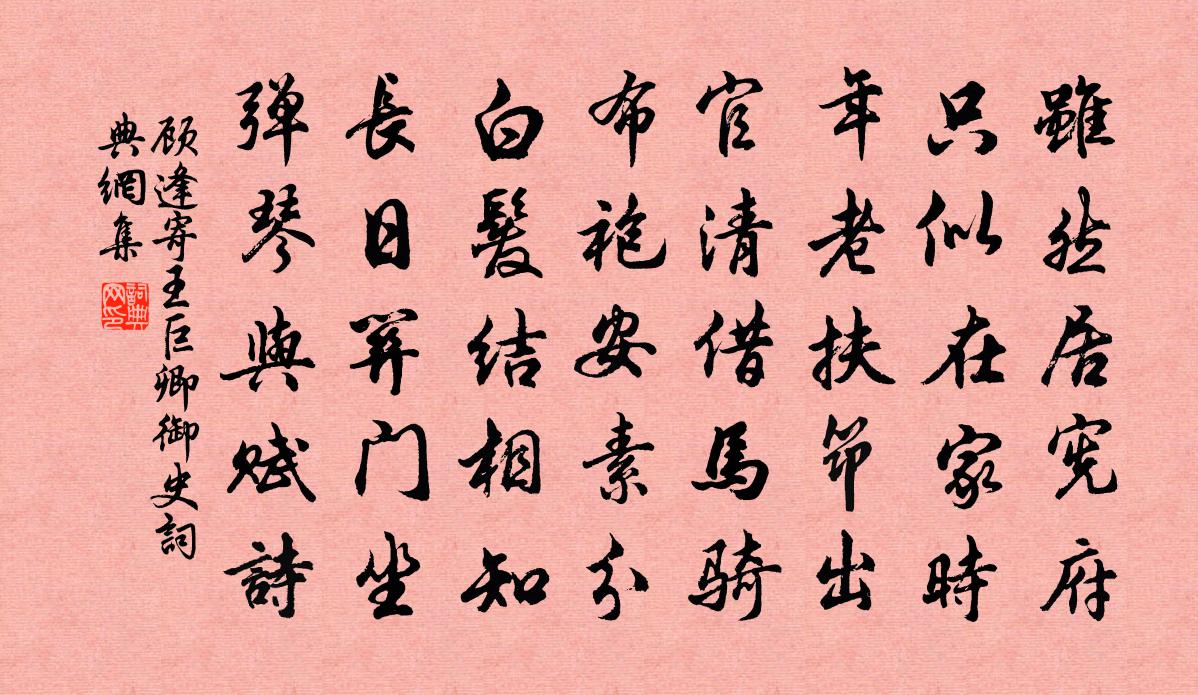 雖然居憲府
只似在家時
年老扶筇出
官清借馬騎
布袍安素分
白髮結相知
長日開门坐
弹琴與賦詩
顾逢寄王巨卿御史詞
典網集
詞典
网印